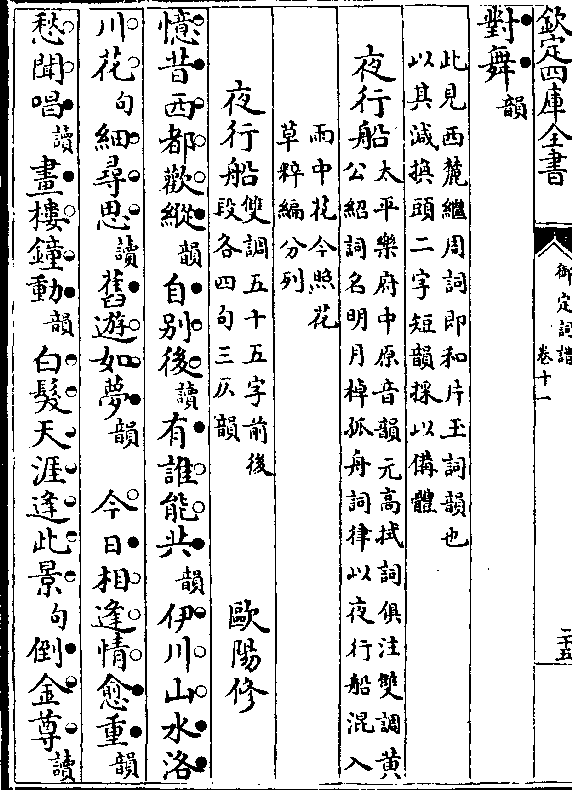 欽定四庫全書
御定詞譜
卷十一
二十五
對舞韻
此見西麓繼周詞即和片玉詞韻也
以其減換頭二字短韻採以備體
夜行船太平樂府中原音韻元高拭詞俱注雙調黄
公紹詞名明月棹孤舟詞律以夜行船混入
雨中花今照花
草粹編分列
夜行船雙調五十五字前後
段各四句三仄韻
歐陽修
憶昔西都歡縱韻自别後讀有誰能共韻伊川山水洛
川花句細尋思讀舊遊如夢韻　今日相逢情愈重韻
愁聞唱讀畫樓鐘動韻白髮天涯逢此景句倒金尊讀